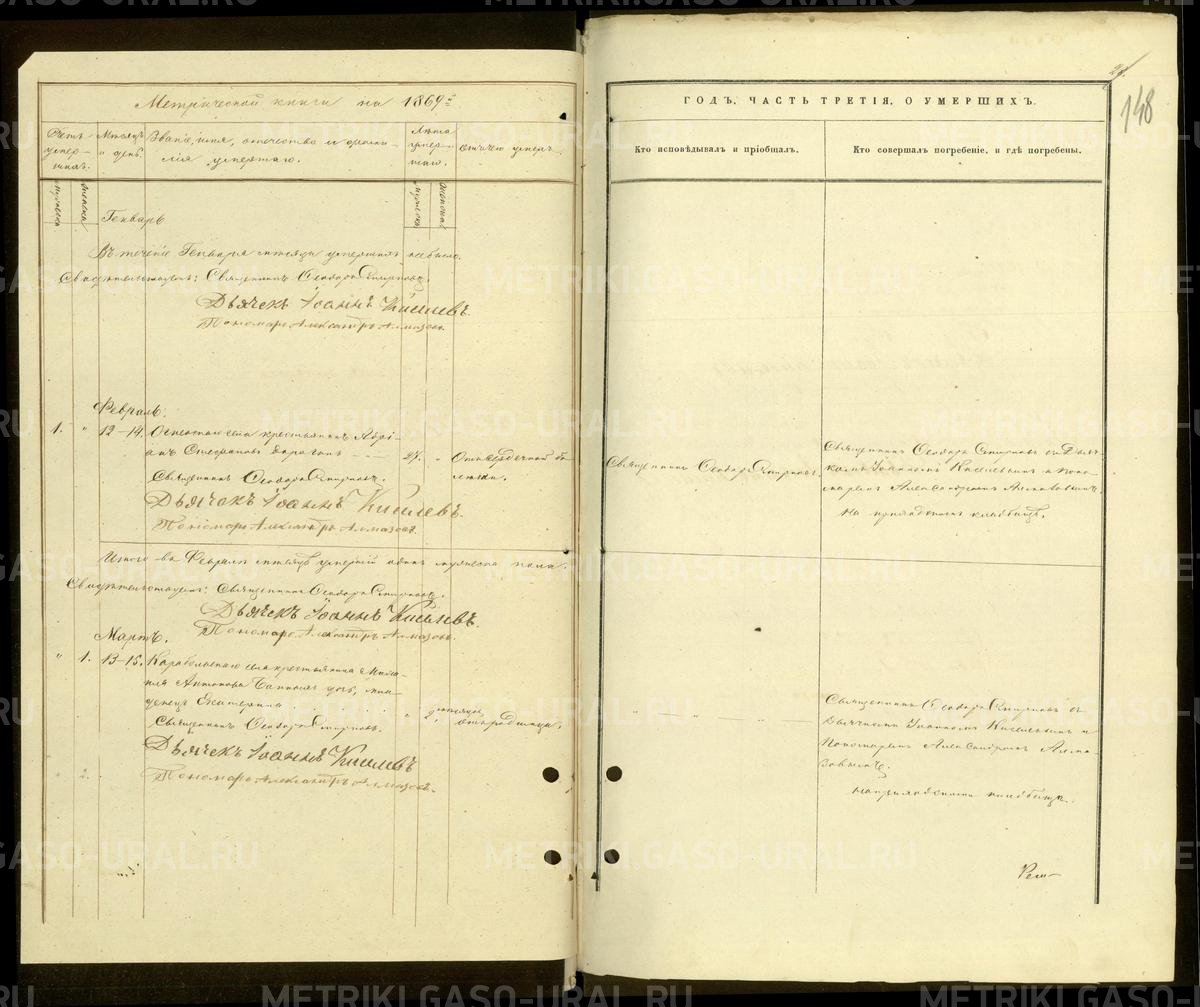 Метрической книги на 1869й
Счетъ умер-шихъ.
Мѣсяцъ и день.
Званіе, имя, отчество и фами-
лія умершаго.
Лѣта умер-шаго.
Отчего умеръ.
мужеска
женска
мужеска
женска
Генварь
Въ теченіе Генваря мѣсяца умершихъ не было.
Свидѣтельствуемъ: Священникъ Ѳеодоръ Смирновъ.
Дьячекъ Іоаннъ Киселевъ.
Пономарь Александръ Алмазовъ.
Февраль.
1. " 12–14. крестьянинъ Адрі-
анъ Стефановъ 27. " Отъ сердечной бо-
лезни.
Священникъ Ѳеодоръ Смирновъ.
Дьячекъ Іоаннъ Киселевъ.
Пономарь Александръ Алмазовъ.
Итого въ Февралѣ мѣсяцѣ умершій одинъ мужеска пола.
Свидѣтельствуемъ: Священникъ Ѳеодоръ Смирновъ.
Дьячекъ Іоаннъ Киселевъ.
Пономарь Александръ Алмазовъ.
Мартъ.
" 1. 13–15. села крестьянина Миха-
ила Антонова дочь, мла-
денецъ Екатерина " 2 мѣсяца отъ родимца.
Священникъ Ѳеодоръ Смирновъ.
Дьячекъ Іоаннъ Киселевъ
Пономарь Александръ Алмазовъ.
ГОДЪ, ЧАСТЬ ТРЕТІЯ, О УМЕРШИХЪ.
148
Кто исповѣдывалъ и пріобщалъ.
Кто совершалъ погребеніе, и гдѣ погребены.
Священникъ Ѳеодоръ Смирновъ
Священникъ Ѳеодоръ Смирновъ съ Дьяч-
комъ Іоанномъ Киселевымъ и поно-
маремъ Александромъ Алмазовымъ.
на приходскомъ кладбищѣ.
" " "
Священникъ Ѳеодоръ Смирновъ съ
Дьячкомъ Іоанномъ Киселевымъ и
Пономаремъ Александромъ Алма-
зовымъ.
на приходскомъ кладбищѣ.
METRIKI.GASO-URAL.RU